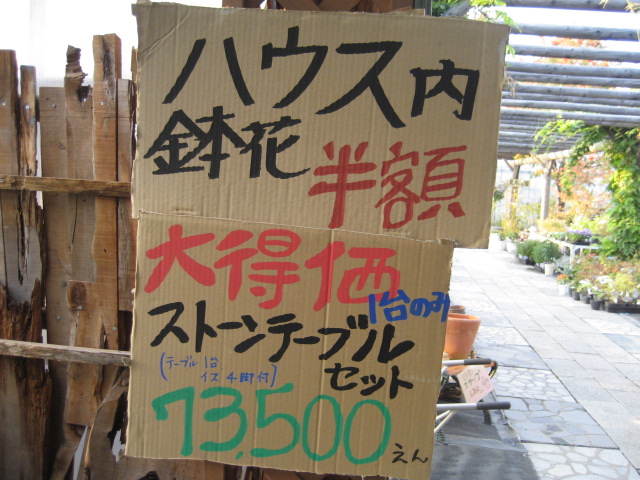 ハウス内
鉢花
半額
大得価
1台のみ
ストーンテーブル
セット
(テーブル 1台
イス 4脚付)
73,500えん